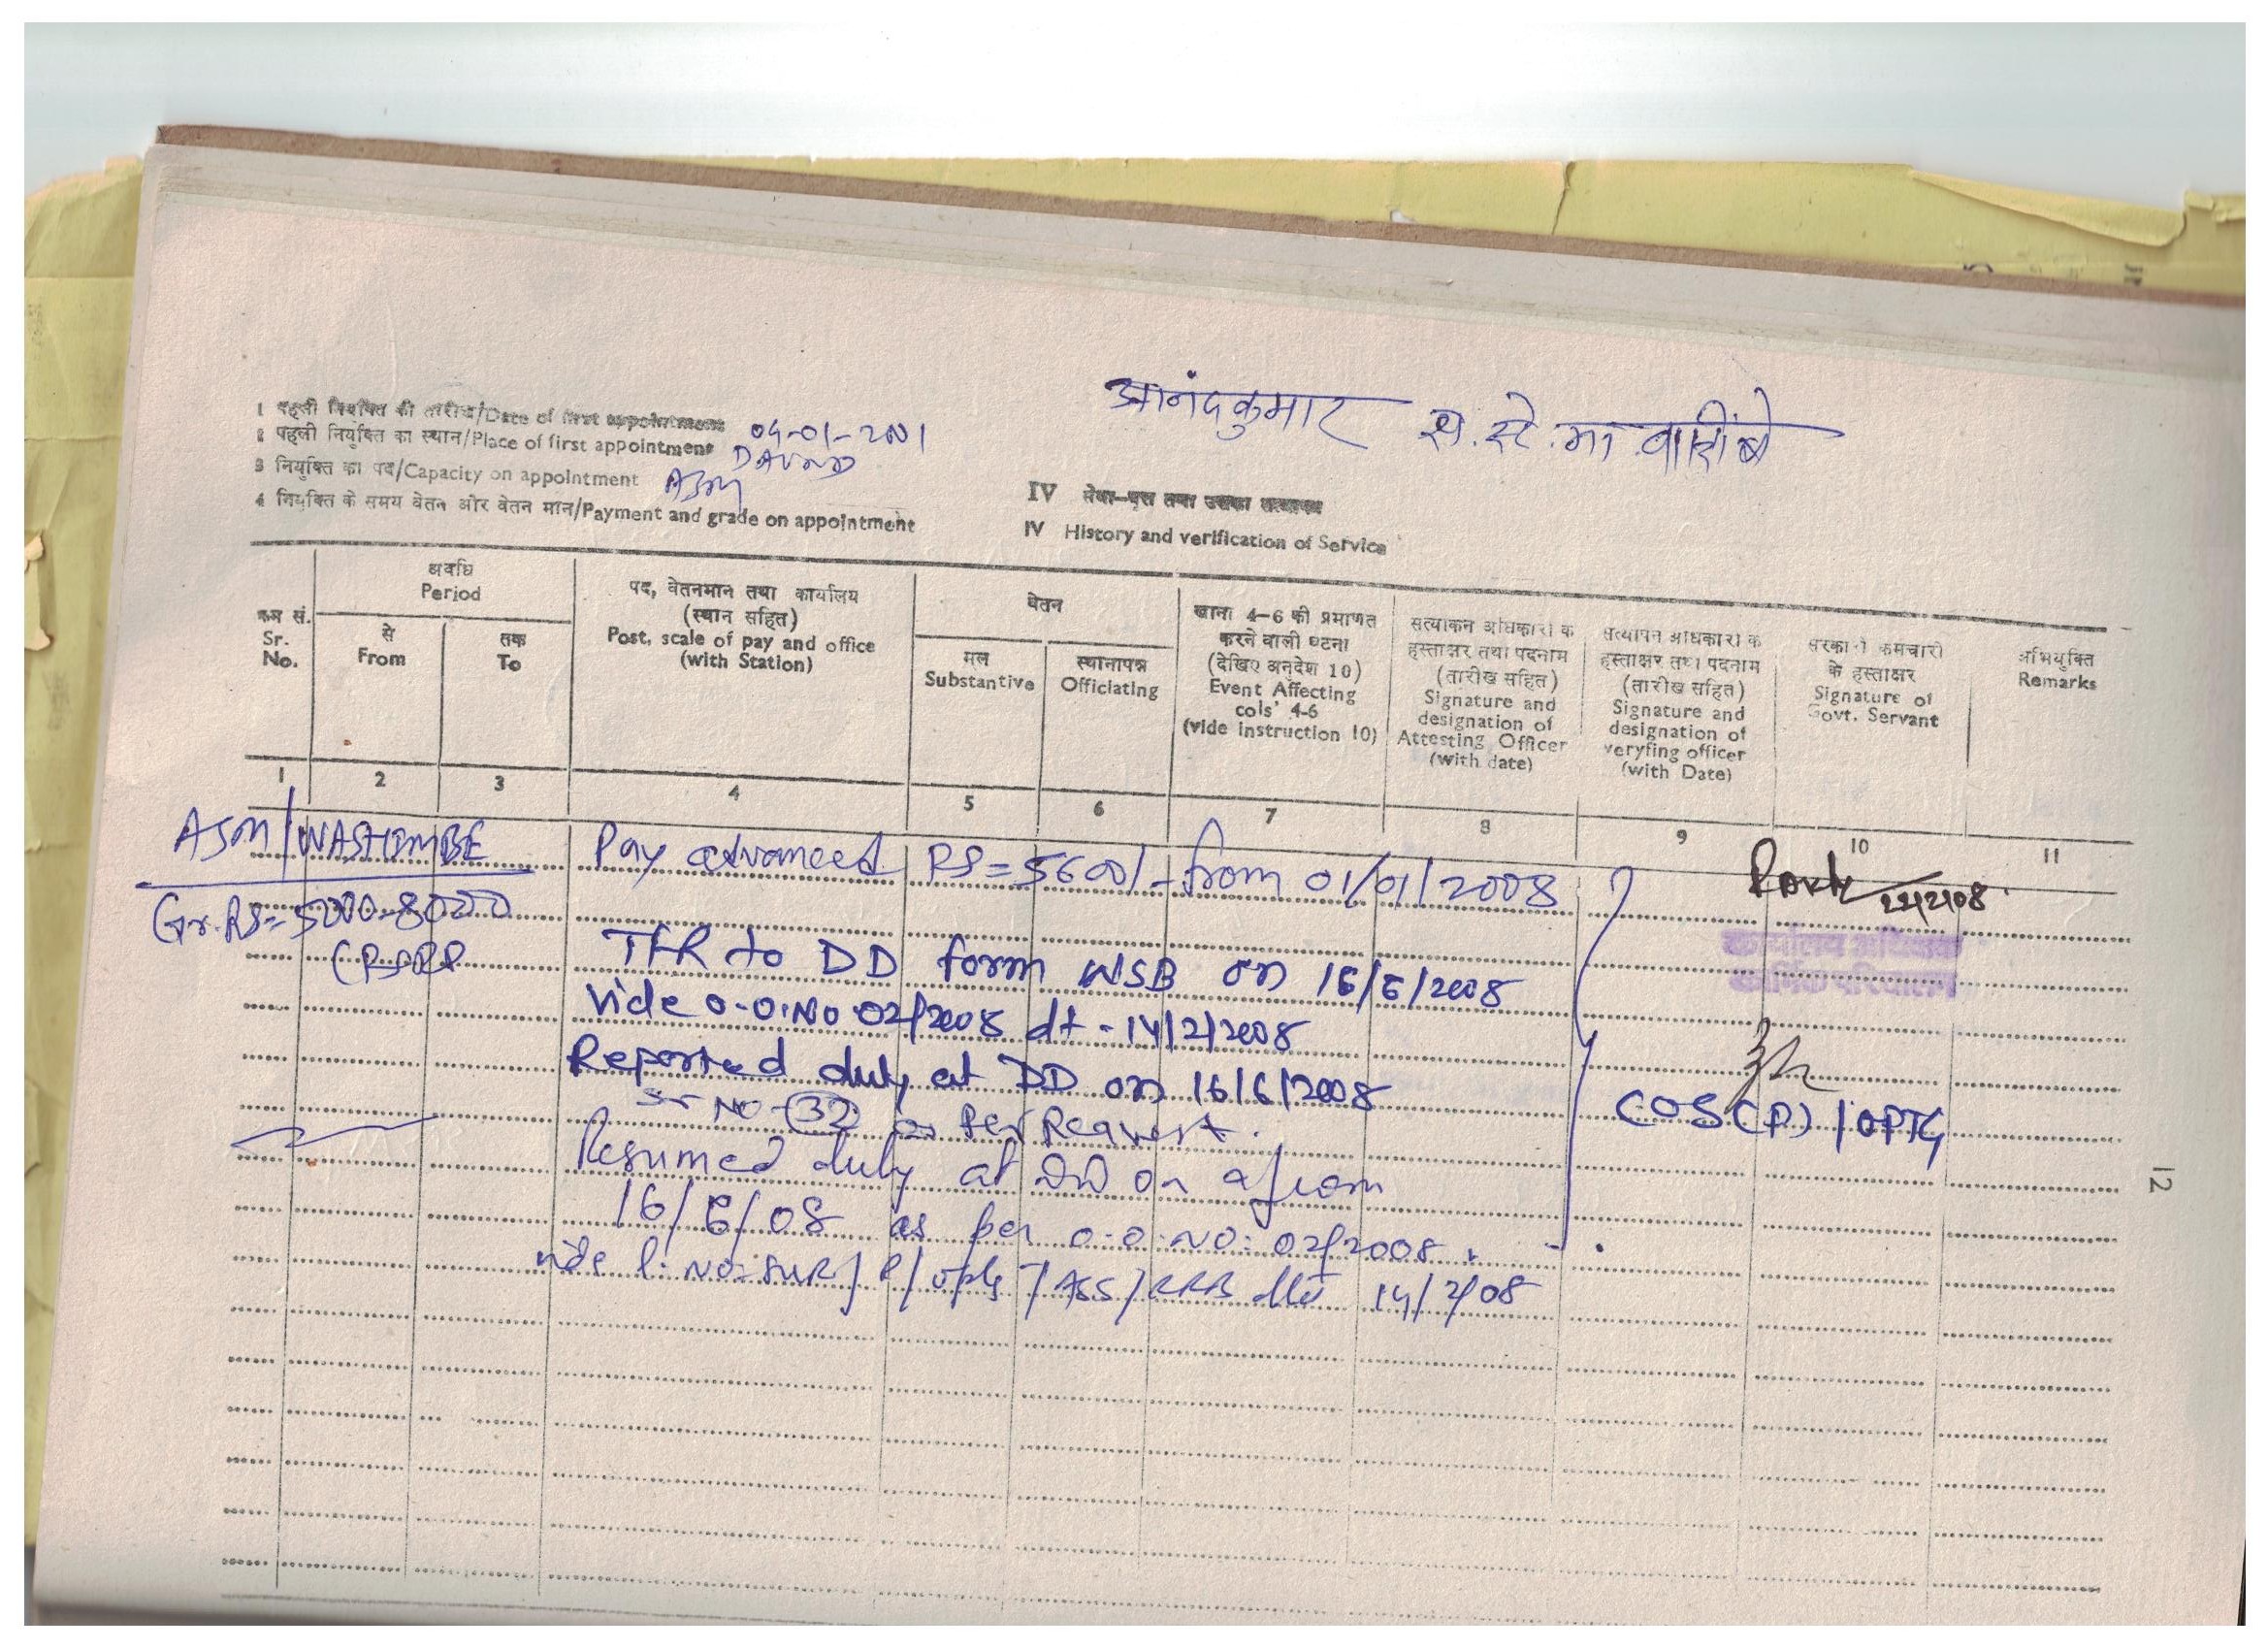 1 पहली नियुक्ति की तारीख/Date of first appointment
04-01-2001
2 पहली नियुक्ति का स्थान/Place of first appointment
DAUND
3 नियुक्ति का पद/Capacity on appointment ASM
4 नियुक्ति के समय वेतन और वेतन मान/Payment and grade on appointment
आनंदकुमार स.स्टे.मा
IV सेवा-वृत्त तथा उसका सत्यापन
IV History and verification of Service
क्रम सं.
Sr.
No.
अवधि
Period
से
From
तक
To
पद, वेतनमान तथा कार्यालय
(स्थान सहित)
Post, scale of pay and office
(with Station)
वेतन
मल
Substantive
स्थानापन्न
Officiating
खाना 4-6 की प्रमाणत
करने वाली घटना
(देखिए अनुदेश 10)
Event Affecting
cols' 4-6
(vide instruction 10)
सत्याकन अधिकारी क
हस्ताक्षर तथा पदनाम
(तारीख सहित)
Signature and
designation of
Attesting Officer
(with date)
सत्यापन अधिकारी क
हस्ताक्षर तथा पदनाम
(तारीख सहित)
Signature and
designation of
veryfing officer
(with Date)
सरकारी कमचारी
के हस्ताक्षर
Signature of
Govt. Servant
अभियुक्ति
Remarks
1 2 3 4 5 6 7 8 9 10 11
ASM/WASHIMBE Pay advanced RS=5600/- from 01/01/2008
22/2/08
Gr.RS=5000-8000
(RSRP
कार्यालय अधिक्षक
कार्मिक परिचालन
TFR to DD form WSB on 16/6/2008
Vide O.O.NO 02/2008 dt-14/2/2008
Reported duty at DD on 16/6/2008
Sr NO-32 as Per Request.
COS(P)/OPTG
Resumed duty at DD on
16/6/08 as per O.O.NO: 02/2008.
vide l. NO: SUR/P/optg/ASS/RRB dtd 14/2/08
12